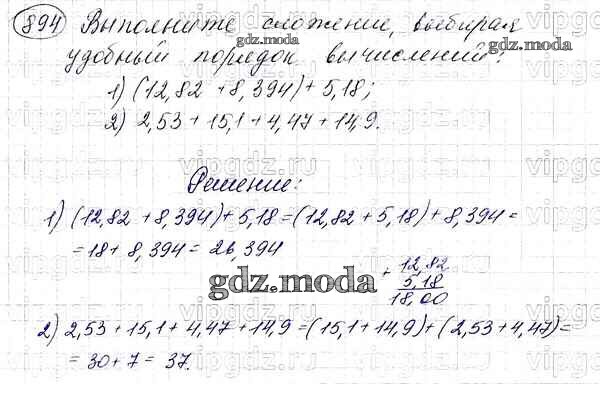 894 Выполните сложение, выбирая
удобный порядок вычислений:
1) (12,82 + 8,394) + 5,18;
2) 2,53 + 15,1 + 4,47 + 14,9.
Решение:
1) (12,82 + 8,394) + 5,18 = (12,82 + 5,18) + 8,394 =
= 18 + 8,394 = 26,394
+ 12,82
5,18
18,00
gdz.moda
2) 2,53 + 15,1 + 4,47 + 14,9 = (15,1 + 14,9) + (2,53 + 4,47) =
= 30 + 7 = 37.